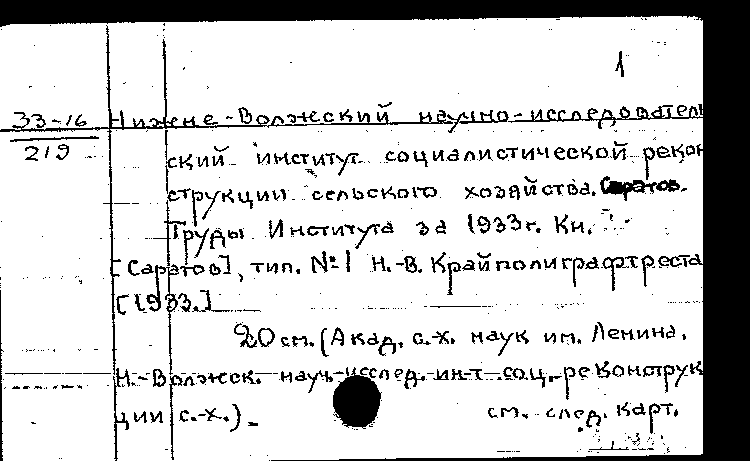 1
33-16 Нижне-Волжский научно-исследователь
219
ский институт социалистической рекон
струкции сельского хозяйства. Саратов.
Труды Института за 1933г. Кн.
[Саратов], тип. №1 Н.-В. Крайполиграфтреста
[1933.]
20 см. (Акад. с.-х. наук им. Ленина.
Н.-Волжск. науч-исслед. ин-т соц. реконструк
ции с.-х.).
см. след. карт.